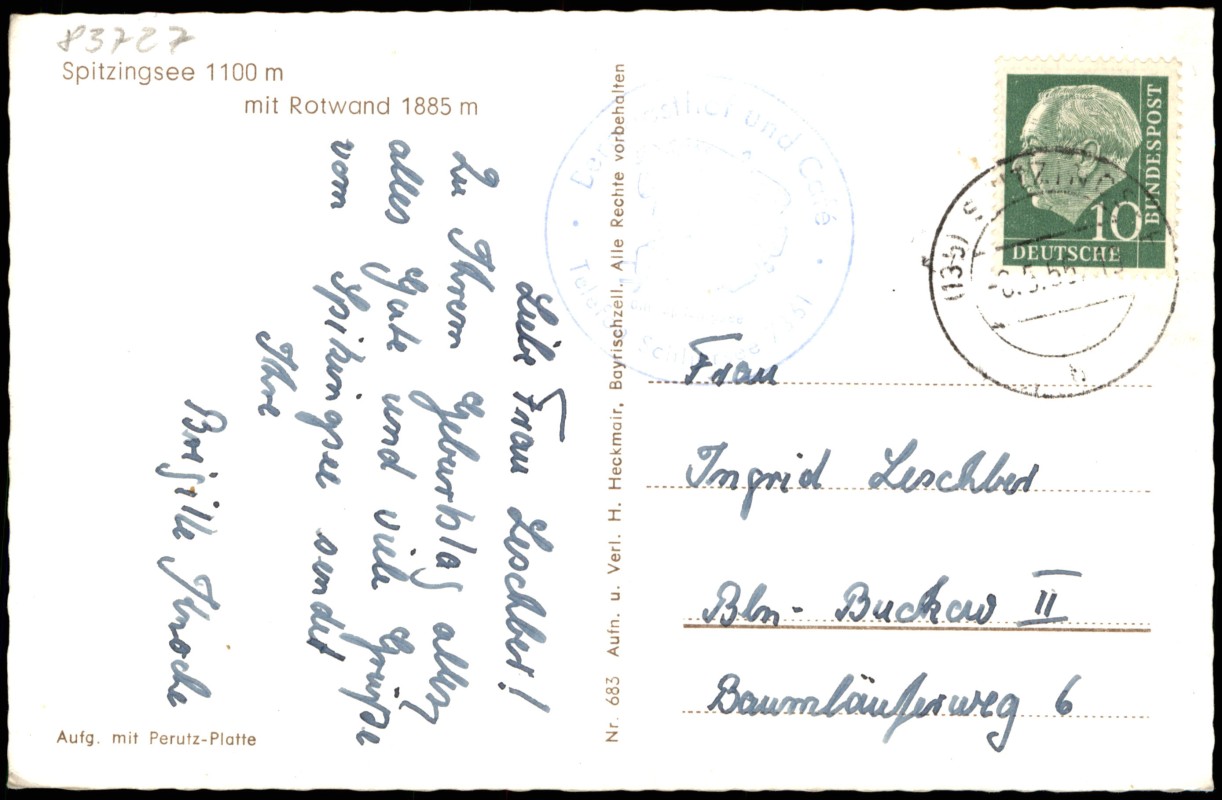 83727
Spitzingsee 1100 m
mit Rotwand 1885 m
Liebe Frau Leschber!
Zu Ihrem Geburtstag
alles Gute und viele Grüße
vom Spitzingsee sendet
Ihre
Aufg. mit Perutz-Platte
Nr. 683 Aufn. u. Verl. H. Heckmair, Bayrischzell, Alle Rechte vorbehalten
und Café
10
DEUTSCHE
BUNDESPOST
(13b)
Frau
Ingrid Leschber
Bln- Buckow II
Baumläuferweg 6